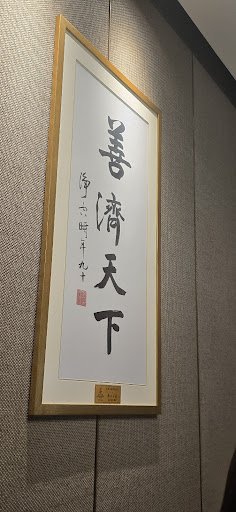 善濟天下
淨空時年九十